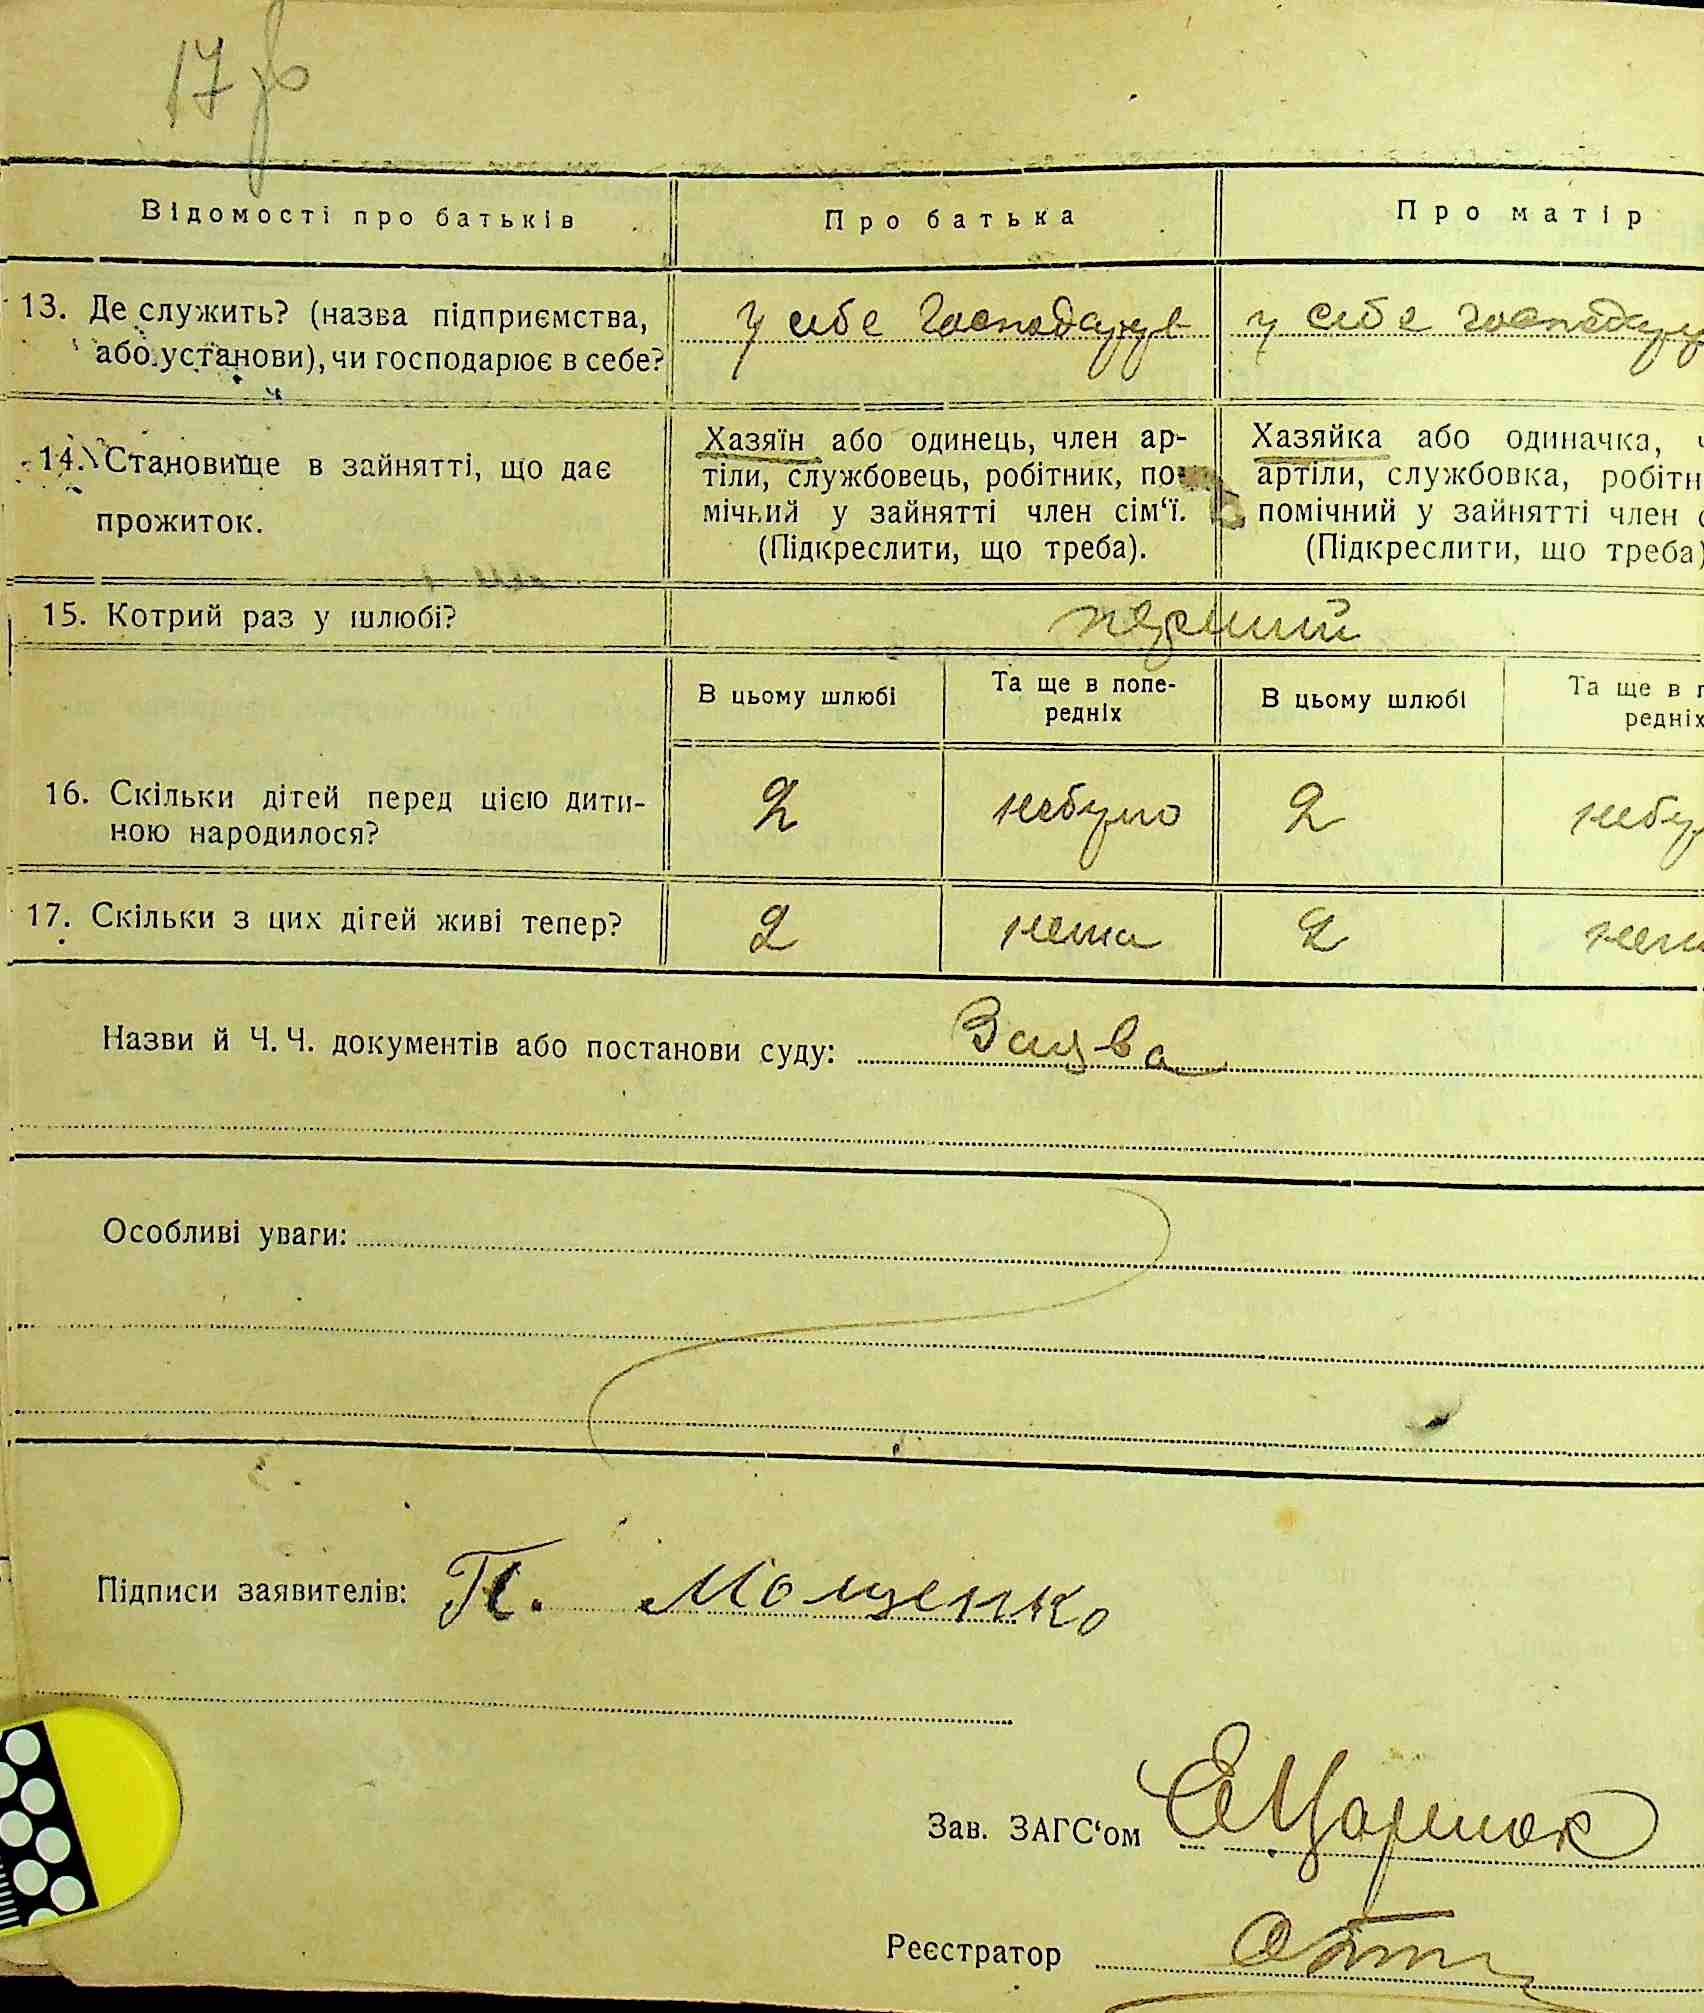 17
Відомості про батьків
Про батька
Про матір
13. Де служить? (назва підприємства,
або установи), чи господарює в себе?
у себе господарує
у себе
14. Становище в зайнятті, що дає
прожиток.
Хазяїн або одинець, член ар-
тіли, службовець, робітник, по-
мічний у зайнятті член сім‘ї.
(Підкреслити, що треба).
Хазяйка або одиначка, ч
артіли, службовка, робітн
помічний у зайнятті член с
(Підкреслити, що треба)
15. Котрий раз у шлюбі?
перший
В цьому шлюбі
Та ще в попе-
редніх
В цьому шлюбі
Та ще в п
редніх
16. Скільки дітей перед цією дити-
ною народилося?
2
небуло
2
небу
17. Скільки з цих дітей живі тепер?
2
нема
2
нем
Назви й Ч. Ч. документів або постанови суду: Заява
Особливі уваги:
Підписи заявителів: П. Мощенко
Зав. ЗАГС‘ом
Реєстратор